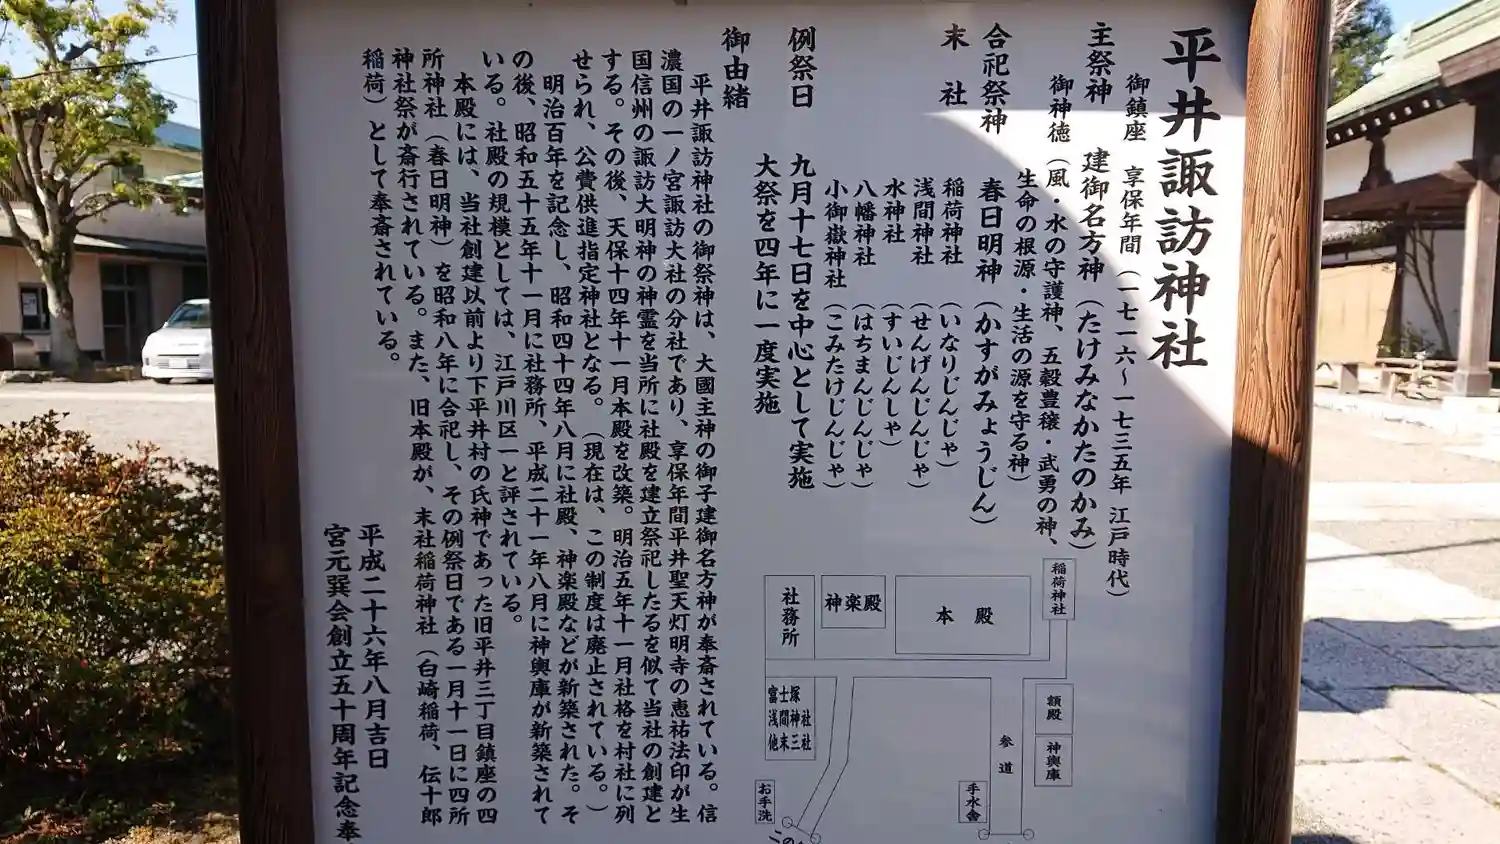 平井諏訪神社
御鎮座 享保年間(一七一六～一七三五年 江戸時代)
主祭神 建御名方神(たけみなかたのかみ)
御神徳(風・水の守護神、五穀豊穣・武勇の神、
生命の根源・生活の源を守る神)
合祀祭神 春日明神(かすがみょうじん)
末社 稲荷神社(いなりじんじゃ)
浅間神社(せんげんじんじゃ)
水神社(すいじんしゃ)
八幡神社(はちまんじんじゃ)
小御嶽神社(こみたけじんじゃ)
例祭日 九月十七日を中心として実施
大祭を四年に一度実施
御由緒
平井諏訪神社の御祭神は、大國主神の御子建御名方神が奉斎されている。信
濃国の一ノ宮諏訪大社の分社であり、享保年間平井聖天灯明寺の恵祐法印が生
国信州の諏訪大明神の神霊を当所に社殿を建立祭祀したるを似て当社の創建と
する。その後、天保十四年十一月本殿を改築。明治五年十一月社格を村社に列
せられ、公費供進指定神社となる。(現在は、この制度は廃止されている。)
明治百年を記念し、昭和四十四年八月に社殿、神楽殿などが新築された。そ
の後、昭和五十五年十一月に社務所、平成二十一年八月に神輿庫が新築されて
いる。社殿の規模としては、江戸川区一と評されている。
本殿には、当社創建以前より下平井村の氏神であった旧平井三丁目鎮座の四
所神社(春日明神)を昭和八年に合祀し、その例祭日である一月十一日に四所
神社祭が斎行されている。また、旧本殿が、末社稲荷神社(白崎稲荷、伝十郎
稲荷)として奉斎されている。
平成二十六年八月吉日
宮元巽会創立五十周年記念奉
稲荷神社
本殿
神楽殿
社務所
額殿
神輿庫
参道
手水舎
富士塚
浅間神社
他末三社
お手洗